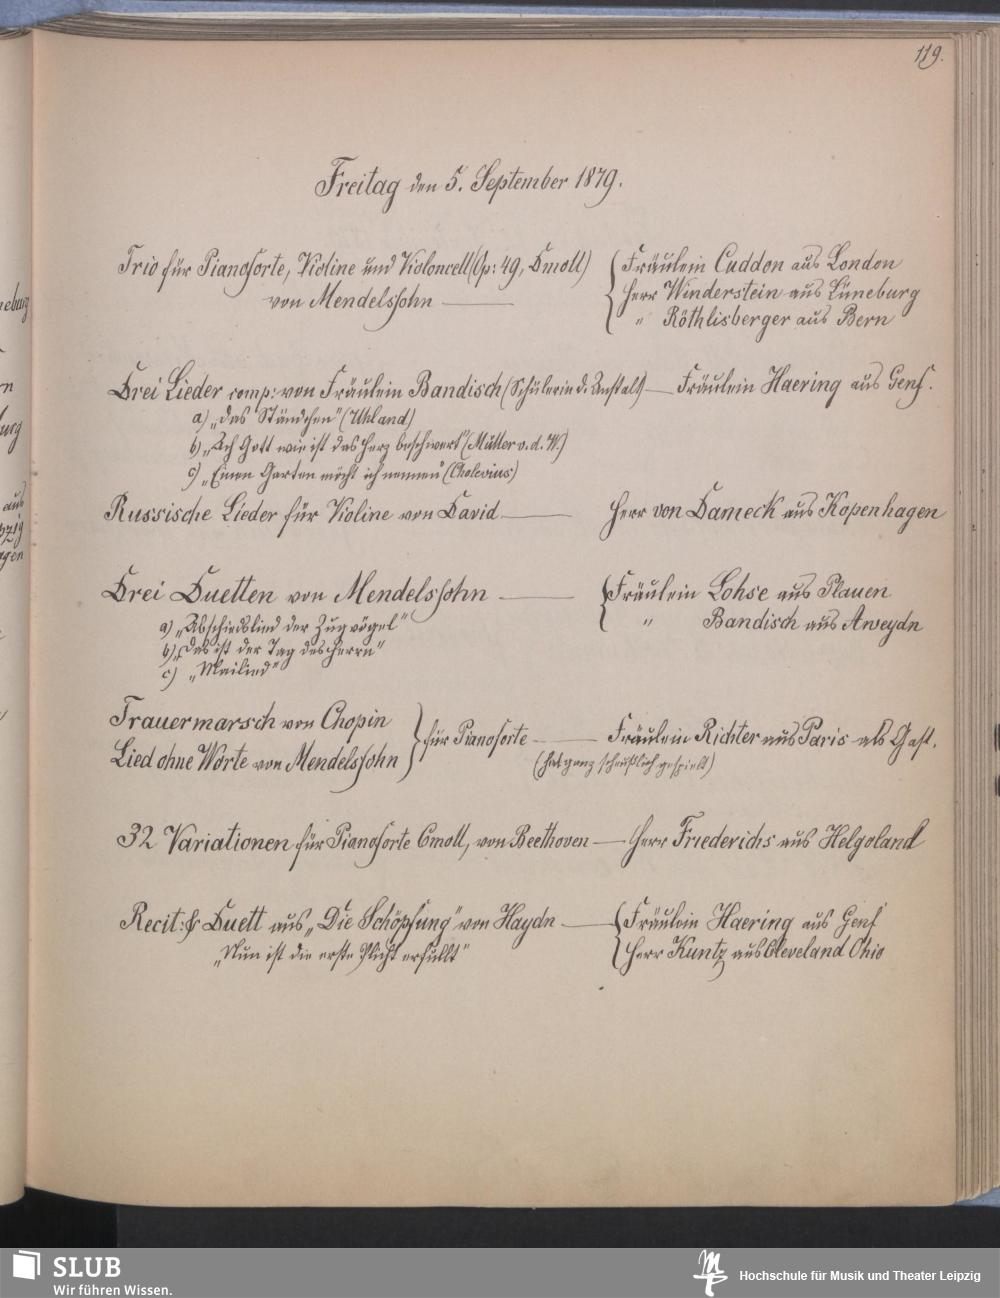 119.
Freitag den 5. September 1879.
Trio für Pianoforte, Violine und Violoncell (Op: 49, Dmoll)
von Mendelssohn
Fräulein Cuddon aus London
Herr Winderstein aus Lüneburg
" Röthlisberger aus Bern
Drei Lieder comp: von Fräulein Bandisch (Schülerin d: Anstalt) — Fräulein Haering aus Genf.
a) „das Ständchen" (Uhland)
b) „Ach Gott wie ist das Herz beschwert" (Müller v. d. W.)
c) „Einen Garten möcht ich nennen" (Cholevius)
Russische Lieder für Violine von David — Herr von Dameck aus Kopenhagen
Drei Duetten von Mendelssohn
a) „Abschiedslied der Zugvögel"
b) „das ist der Tag des Herrn"
c) „Mailied"
Fräulein Lohse aus Plauen
" Bandisch aus Arweydn
Trauermarsch von Chopin
Lied ohne Worte von Mendelssohn
für Pianoforte — Fräulein Richter aus Paris als Gast.
(hat ganz scheußlich gespielt)
32 Variationen für Pianoforte Cmoll, von Beethoven — Herr Friederichs aus Helgoland
Recit: & Duett aus „Die Schöpfung" von Haydn
„Nun ist die erste Pflicht erfüllt"
Fräulein Haering aus Genf
Herr Kuntz aus Cleveland Ohio
SLUB
Wir führen Wissen.
Hochschule für Musik und Theater Leipzig